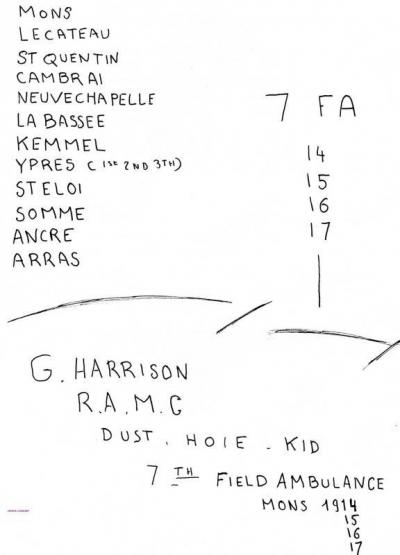 MONS
LECATEAU
ST QUENTIN
CAMBRAI
NEUVECHAPELLE
LA BASSEE
KEMMEL
YPRES ( 1SE 2ND 3TH)
ST ELOI
SOMME
ANCRE
ARRAS
7 FA
14
15
16
17
G. HARRISON
R.A.M.C
DUST. HOIE - KID
7 TH FIELD AMBULANCE
MONS 1914
15
16
17